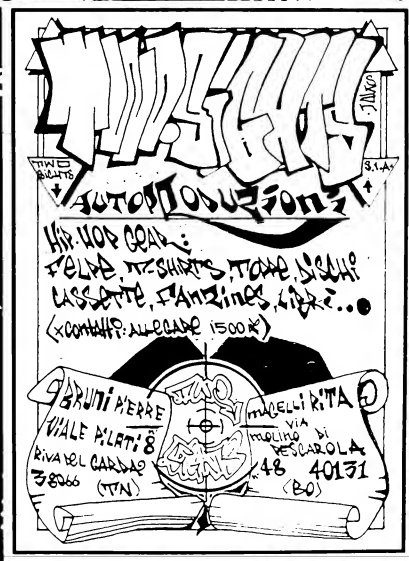 TWO.SIGHTS
JAWS
TWO
SIGHTS
S.I.A.
AUTOPRODUZIONI
HIP-HOP GEAR:
FELPE, T-SHIRTS, TOPPE, DISCHI
CASSETTE, FANZINES, LIBRI...
(X CONTATTI: ALLEGARE 1500 £)
TWO
SIGHTS
BRUNI PIERRE
VIALE PILATI 8
RIVA DEL GARDA
38066 (TN)
MAGELLI RITA
VIA
MOLINO DI
PESCAROLA
48 40131
(BO)